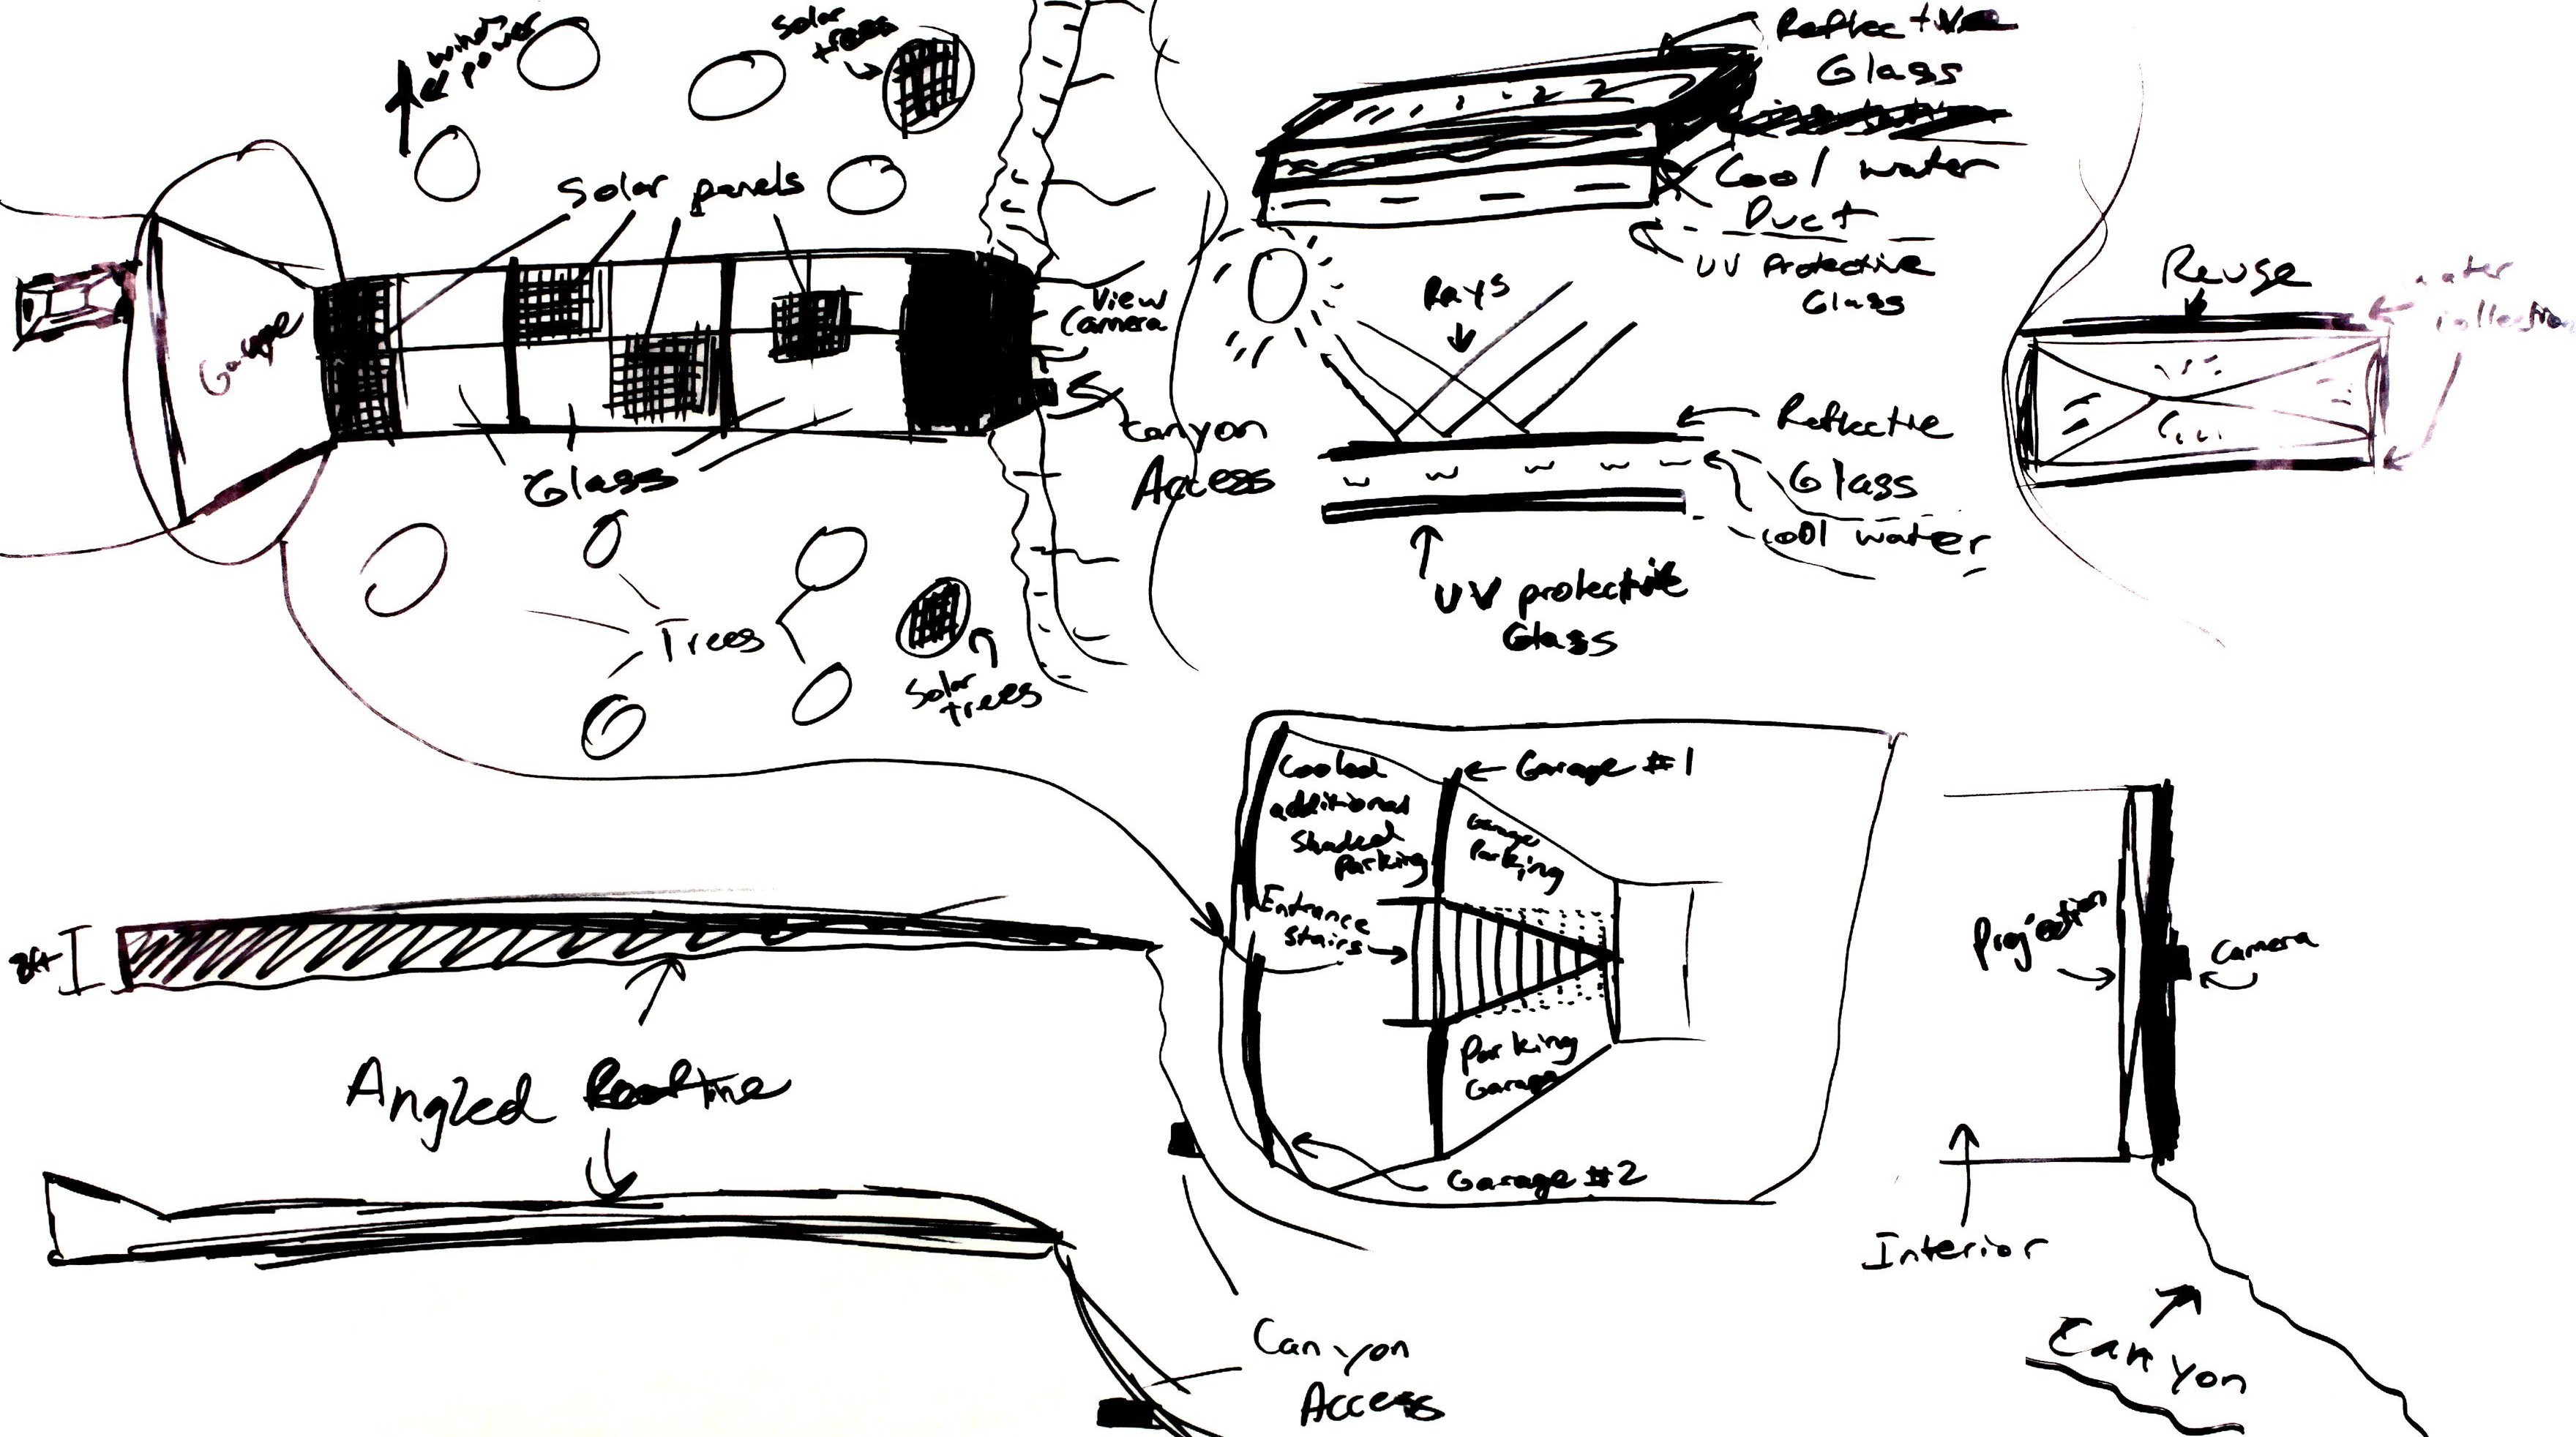 wind
power
solar
trees
Solar panels
Garage
View
Camera
Canyon
Access
Glass
Trees
Solar
trees
Reflective
Glass
Cool water
Duct
UV Protective
Glass
Rays
Reflective
Glass
cool water
UV protective
Glass
Reuse
water
collection
8ft
Angled Roofline
Canyon
Access
Cooled
additional
Shaded
Parking
Garage #1
Garage
Parking
Entrance
Stairs
Parking
Garage
Garage #2
Projection
Camera
Interior
Canyon